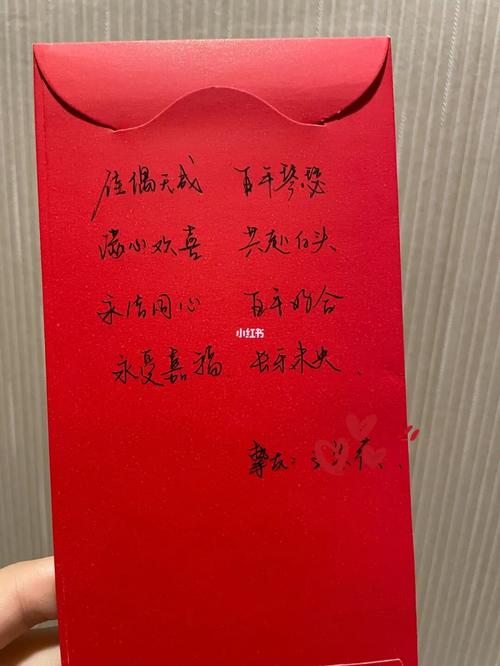 佳偶天成 百年琴瑟
满心欢喜 共赴白头
永结同心 百年好合
小红书
永受嘉福 长乐未央
挚友：